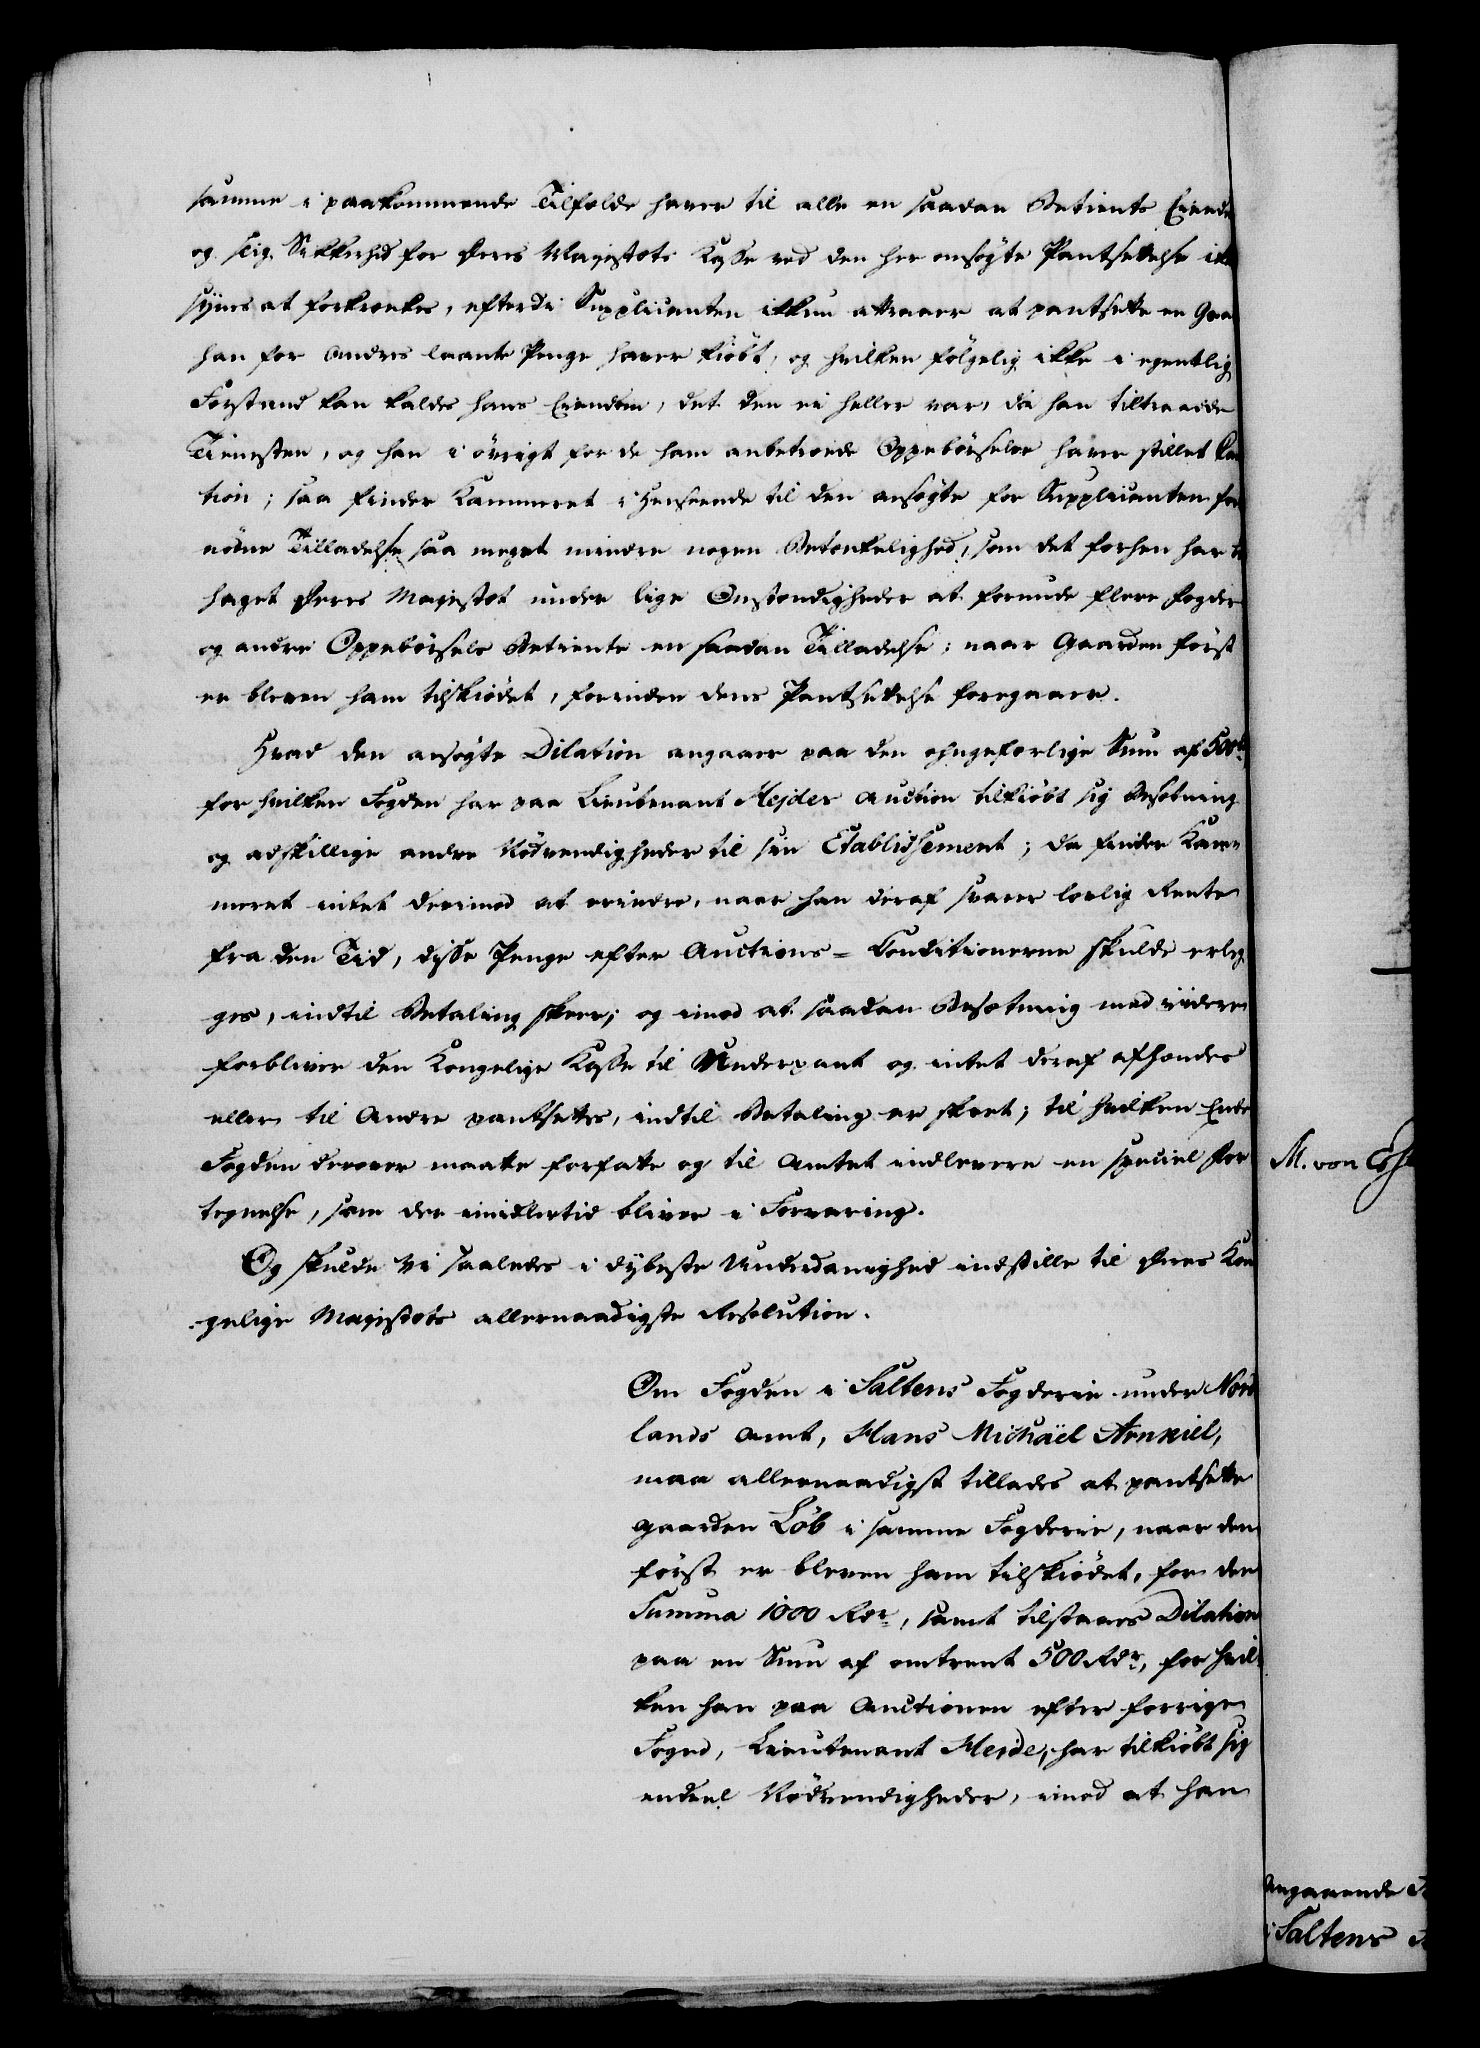 samme i paakommende Tilfælde haver til alle en saadan Betients Eiende
og slig Sikkerhed for Deres Majestæts Kasse ved den her ansøgte Pantsættelse ikke
synes at forkrænkes, efterdi Supplicanten ikkun attraaer at pantsætte en Gaa
han for andres laante Penge haver kiöbt, og hvilken fölgelig ikke i egentlig
Forstand kan kaldes hans Eiendom, det den ei heller var, da han tiltraadde
Tienesten, og han i övrigt for de ham anbetroede Oppebörseler haver stillet Cau
tion; saa finder Kammeret i Henseende til den ansøgte for Supplicanten for
nödne Tilladelse saa meget mindre nogen Betænkelighed, som det forhen har be
haget Deres Majestæt under lige Omstændigheder at forunde flere Fogder
og andre Oppebörsels Betiente en saadan Tilladelse; naar Gaarden först
er bleven ham tilskiödet, forinden dens Pantsættelse foregaaer.
Hvad den ansøgte Dilation angaaer paa den ohngefærlige Sum af 500 rd
for hvilken Fogden har paa Lieutenant Hejdes Auction tilkiöbt sig Besætning
og adskillige andre Nödvendigheder til sin Etablissement; da finder Kam-
meret intet derimod at erindre, naar han deraf svarer lovlig Rente
fra den Tid, disse Penge efter Auctions-Conditionerne skulde erleg
ges, indtil Betaling skeer; og imod at saadan Besætning med videre
forbliver den Kongelige Kasse til Underpant og intet deraf afhændes
eller til Andre pantsættes, indtil Betaling er skeet; til hvilken Ende
Fogden derover maatte forfatte og til Amtet indlevere en speciel For
tegnelse, som der imidlertid bliver i Forvaring.
Og skulde vi saaledes i dybeste Underdanighed indstille til Deres Kon
gelige Majestæts allernaadigste Resolution.
Om Fogden i Saltens Fogderie under Nord
lands Amt, Hans Michäel Arnkiel,
maa allernaadigst tillades at pantsætte
Gaarden Löb i samme Fogderie, naar den
först er bleven ham tilskiödet, for den
Summa 1000 Rdr, samt tilstaaes Dilation
paa en Sum af omtrent 500 Rdr, for hvil
ken han paa Auctionen efter forrige
Foged, Lieutenant Heide, har tilkiöbt sig
endeel Nödvendigheder, imod at han
M. von
Angaaende
i Saltens